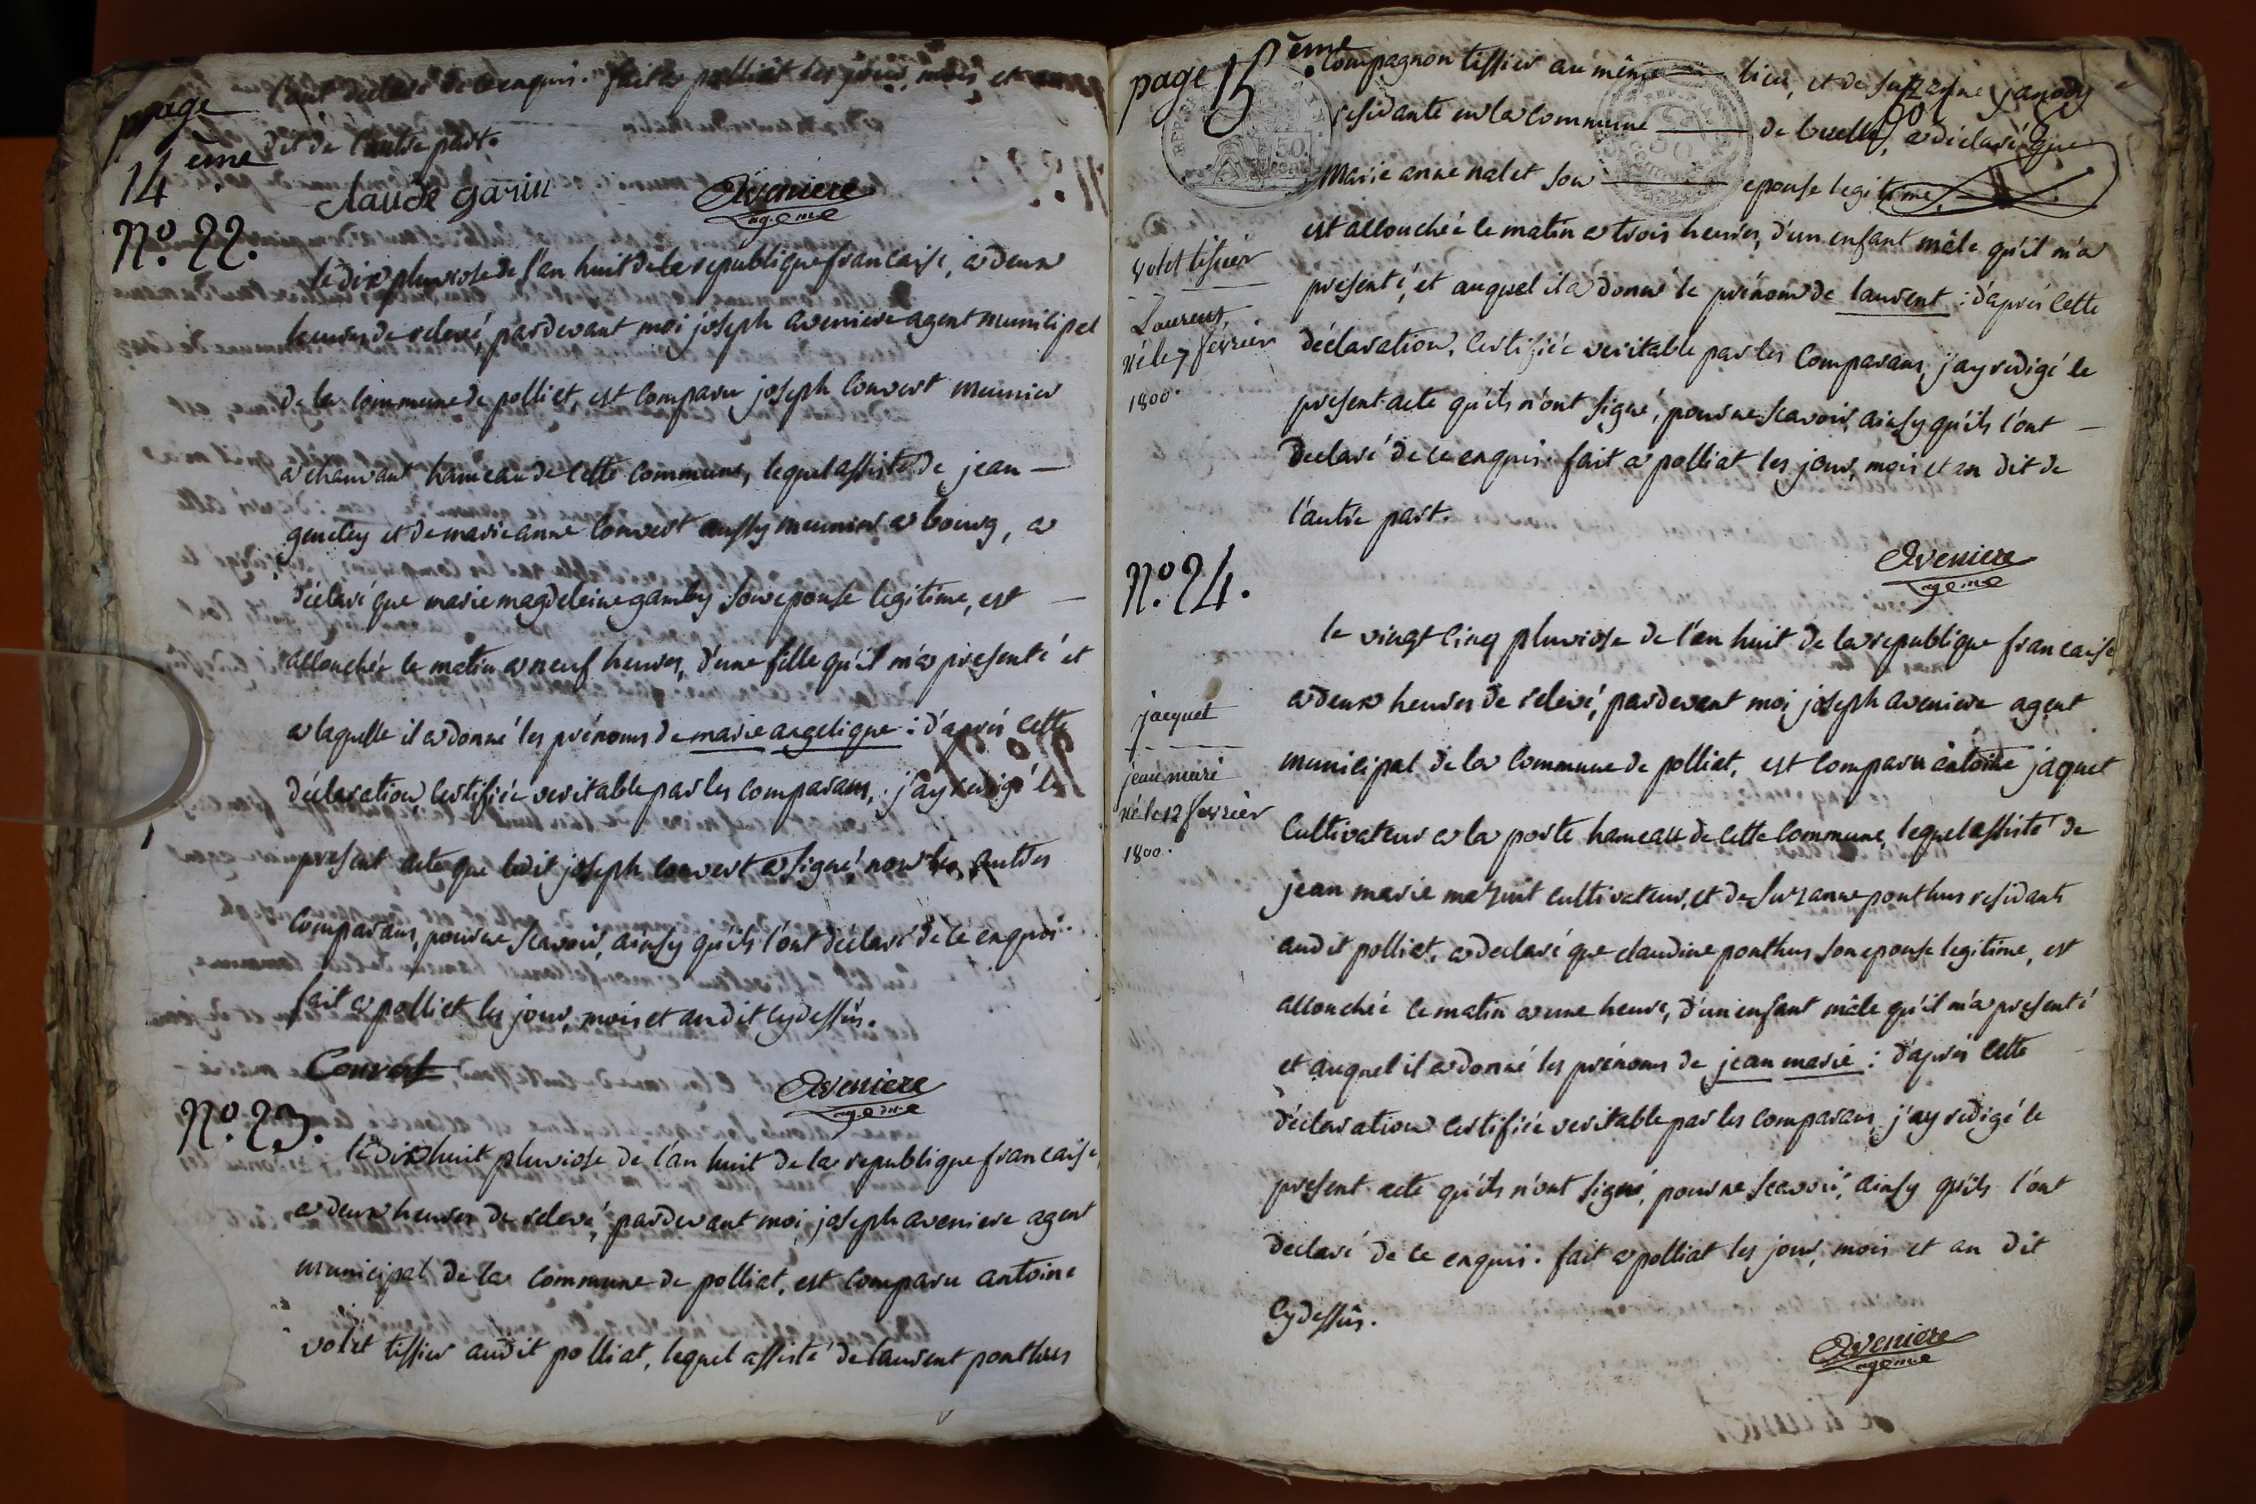 page
14 ème
l'ont declaré de ce enquis. fait a polliat les jour, mois et an
dit de l'autre part.
claude garin
Aveniere
ag. m.
N.º 22.
le dix pluviose de l'an huit de la republique francaise, a deux
heures de relevé, pardevant moi joseph aveniere agent municipal
de la commune de polliat, est comparu joseph convert meunier
a chanvant hameau de cette commune, lequel assisté de jean —
gencley et de marie anne convert aussy meunier a bourg, a
déclaré que marie magdeleine gamby son epouse legitime, est —
accouchée le matin a neuf heures, d'une fille qu'il m'a presenté et
a laquelle il a donné les prénoms de marie angelique : d'après cette
déclaration certifiée veritable par les comparans, j'ay redigé le
present acte que ledit joseph convert a signé, non les autres
comparans, pour ne scavoir, ainsy qu'ils l'ont déclaré de ce enquis.
fait a polliat les jour, mois et an dit cydessûs.
Convert
Aveniere
ag. m.
N.º 23.
le dix huit pluviose de l'an huit de la republique francaise,
a deux heures de relevé, pardevant moi, joseph aveniere agent
municipal de la commune de polliat, est comparu antoine
volet tissier audit polliat, lequel assisté de laurent ponthus
page 15 ème
compagnon tissier au même — lieu, et de suzanne janody
residante en la commune — de buellas, a déclaré que
Marie anne nalet son — epouse legitime,
est accouchée le matin a trois heures, d'un enfant mâle qu'il m'a
presenté, et auquel il a donné le prénom de laurent : d'après cette
déclaration, certifiée veritable par les comparans, j'ay redigé le
present acte qu'ils n'ont signé, pour ne scavoir, ainsy qu'ils l'ont —
declaré de ce enquis. fait a polliat les jour, mois et an dit de
l'autre part.
volet tissier
Laurent,
né le 7 fevrier
1800.
Aveniere
ag. m.
N.º 24.
le vingt cinq pluviose de l'an huit de la republique francaise,
a deux heures de relevé, pardevant moi joseph aveniere agent
municipal de la commune de polliat, est comparu antoine jaquet
cultivateur a la poste hameau de cette commune, lequel assisté de
jean marie mazuit cultivateur, et de suzanne ponthus residants
audit polliat, a declaré que claudine ponthus son epouse legitime, est
accouchée le matin a une heure, d'un enfant mâle qu'il m'a presenté
et auquel il a donné les prénoms de jean marie : d'après cette
déclaration certifiée veritable par les comparans, j'ay redigé le
present acte qu'ils n'ont signé, pour ne scavoir, ainsy qu'ils l'ont
declaré de ce enquis. fait a polliat les jour, mois et an dit
cydessûs.
jacquet
jean marie
né le 12 fevrier
1800.
Aveniere
ag. m.